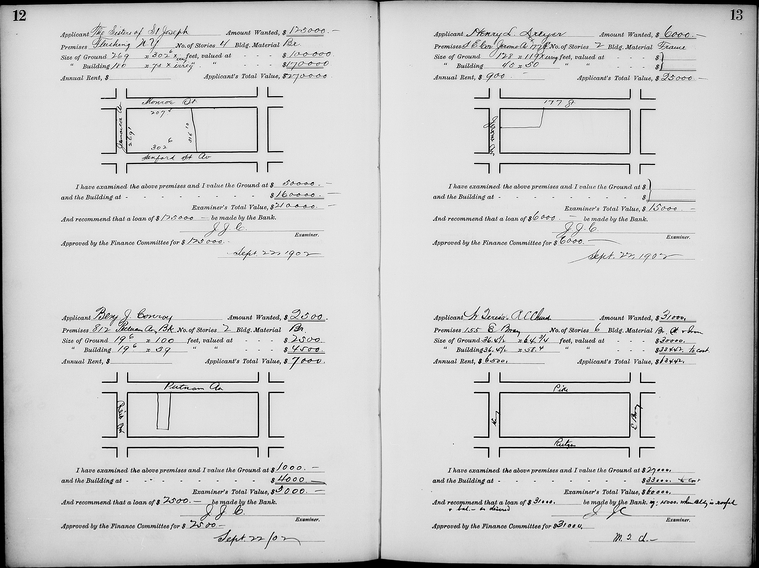 12
Applicant The Sisters of St Joseph Amount Wanted, $ 125000.—
Premises Flushing N.Y No. of Stories 4 Bldg. Material Br.
Size of Ground 269 x 302⁶ x irreg feet, valued at - - $ 100000
" Building 110 x 70 x irreg " " - $ 170000
Annual Rent, $ Applicant's Total Value, $ 270000
Monroe St
207
269
302⁶
Sanford Av
I have examined the above premises and I value the Ground at $ 50000.—
and the Building at - - - - - - $ 160000.—
Examiner's Total Value, $ 210000.—
And recommend that a loan of $ 125000— be made by the Bank.
J J C Examiner.
Approved by the Finance Committee for $ 125000.
Sept. 22, 1902
Applicant Benj J Conroy Amount Wanted, $ 2500.
Premises 812 Putnam Av, Bk. No. of Stories 2 Bldg. Material Br.
Size of Ground 19⁶ x 100 feet, valued at - - $ 2500
" Building 19⁶ x 39 " " - $ 4500
Annual Rent, $ Applicant's Total Value, $ 7000.
Putnam Av
Reid Av
I have examined the above premises and I value the Ground at $ 1000.—
and the Building at - - - - - - $ 4000—
Examiner's Total Value, $ 5000.—
And recommend that a loan of $ 2500.— be made by the Bank.
J J C Examiner.
Approved by the Finance Committee for $ 2500—
Sept. 22/02
13
Applicant Henry L Dreyer Amount Wanted, $ 6000.—
Premises S E Cor Jerome Av 177 St No. of Stories 2 Bldg. Material Frame
Size of Ground 128 x 119 x irreg feet, valued at - - $
" Building 40 x 50 " " - $
Annual Rent, $ 900.— Applicant's Total Value, $ 25000—
177 St
Jerome Av
I have examined the above premises and I value the Ground at $
and the Building at - - - - - - $
Examiner's Total Value, $ 15000.—
And recommend that a loan of $ 6000— be made by the Bank.
J J C Examiner.
Approved by the Finance Committee for $ 6000.—
Sept. 22, 1902
Applicant St Teresa's R C Church Amount Wanted, $ 31000.
Premises 155 E Bway No. of Stories 6 Bldg. Material
Size of Ground x 64 feet, valued at - - $ 30000.
" Building x 58.4 " " - $ to cost
Annual Rent, $ 6500. Applicant's Total Value, $
Pike
E Bway
Rutgers
I have examined the above premises and I value the Ground at $ 27000.
and the Building at - - - - - - $ 33000 to cost
Examiner's Total Value, $ 60000.
And recommend that a loan of $ 31000. be made by the Bank.
& bal.— as desired
J J C Examiner.
Approved by the Finance Committee for $ 31000.